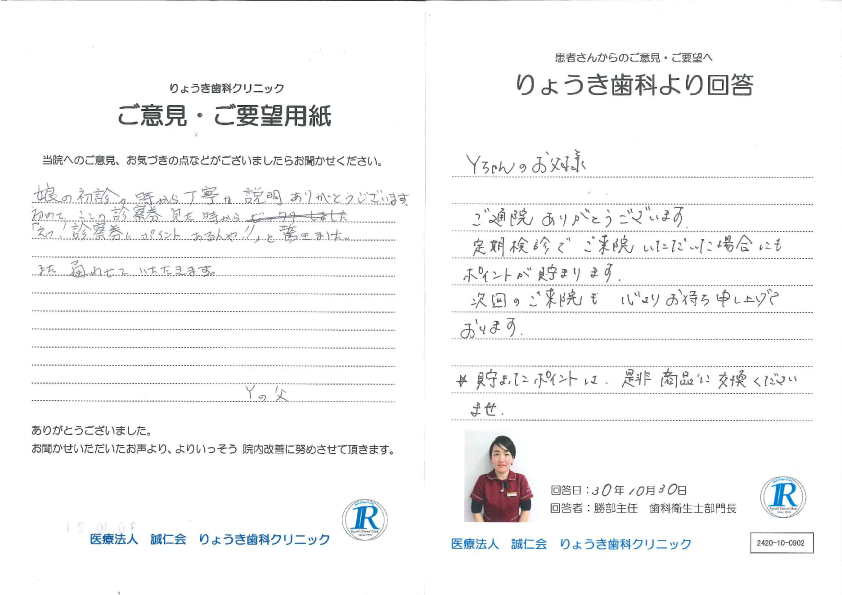 りょうき歯科クリニック
ご意見・ご要望用紙
当院へのご意見、お気づきの点などがございましたらお聞かせください。
娘の初診の時から丁寧な説明ありがとうございます
診察券 見た時から
「えっ!診察券にポイントあるんや!!」と驚きました。
また 通わせて いただきます。
Yの父
ありがとうございました。
お聞かせいただいたお声より、よりいっそう 院内改善に努めさせて頂きます。
医療法人 誠仁会 りょうき歯科クリニック
患者さんからのご意見・ご要望へ
りょうき歯科より回答
Yちゃんのお父様
ご通院ありがとうございます。
定期検診で ご来院 いただいた場合にも
ポイントが貯まります。
次回のご来院も 心よりお待ち申し上げて
おります。
* 貯まったポイントは、是非 商品に交換ください
ませ。
回答日:30年10月30日
回答者:勝部主任 歯科衛生士部門長
医療法人 誠仁会 りょうき歯科クリニック
2420-10-0902